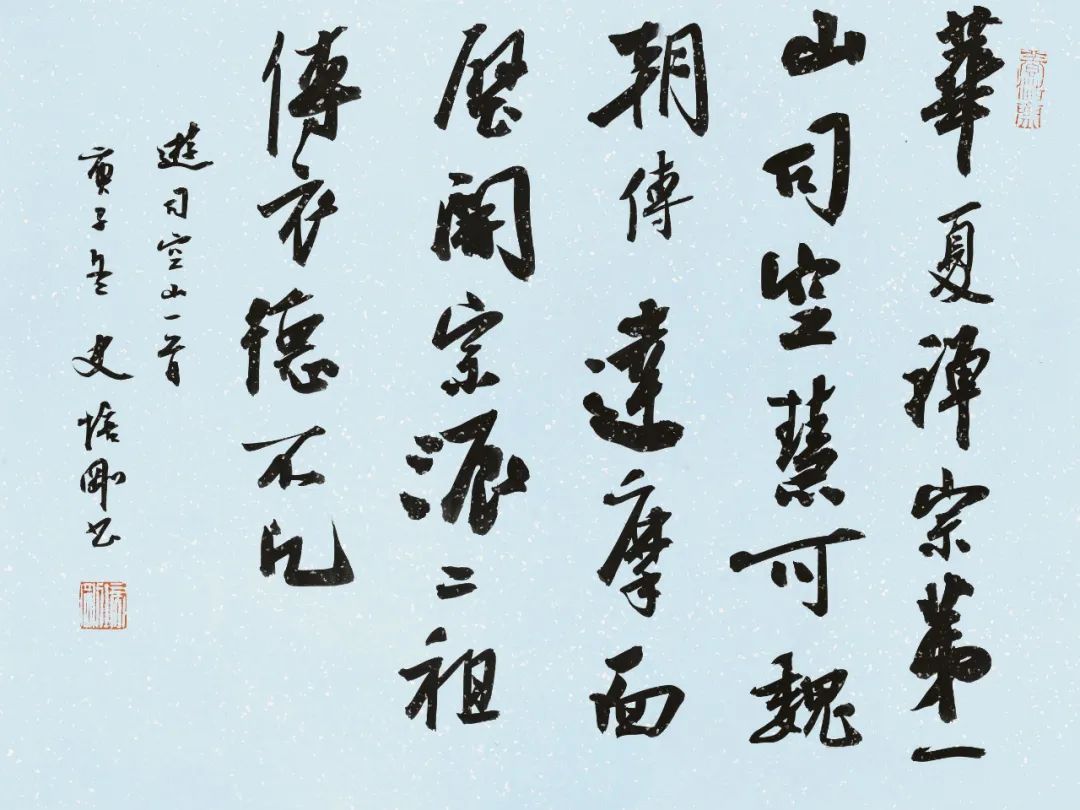 華夏禅宗第一
山司空慧可魏
朝傳達摩面
壁開宗派二祖
傳衣德不凡
遊司空山一首
庚子冬 史培剛书